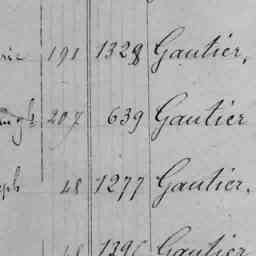 191 1328 Gautier,
207 639 Gautier
48 1277 Gautier,
Gautier